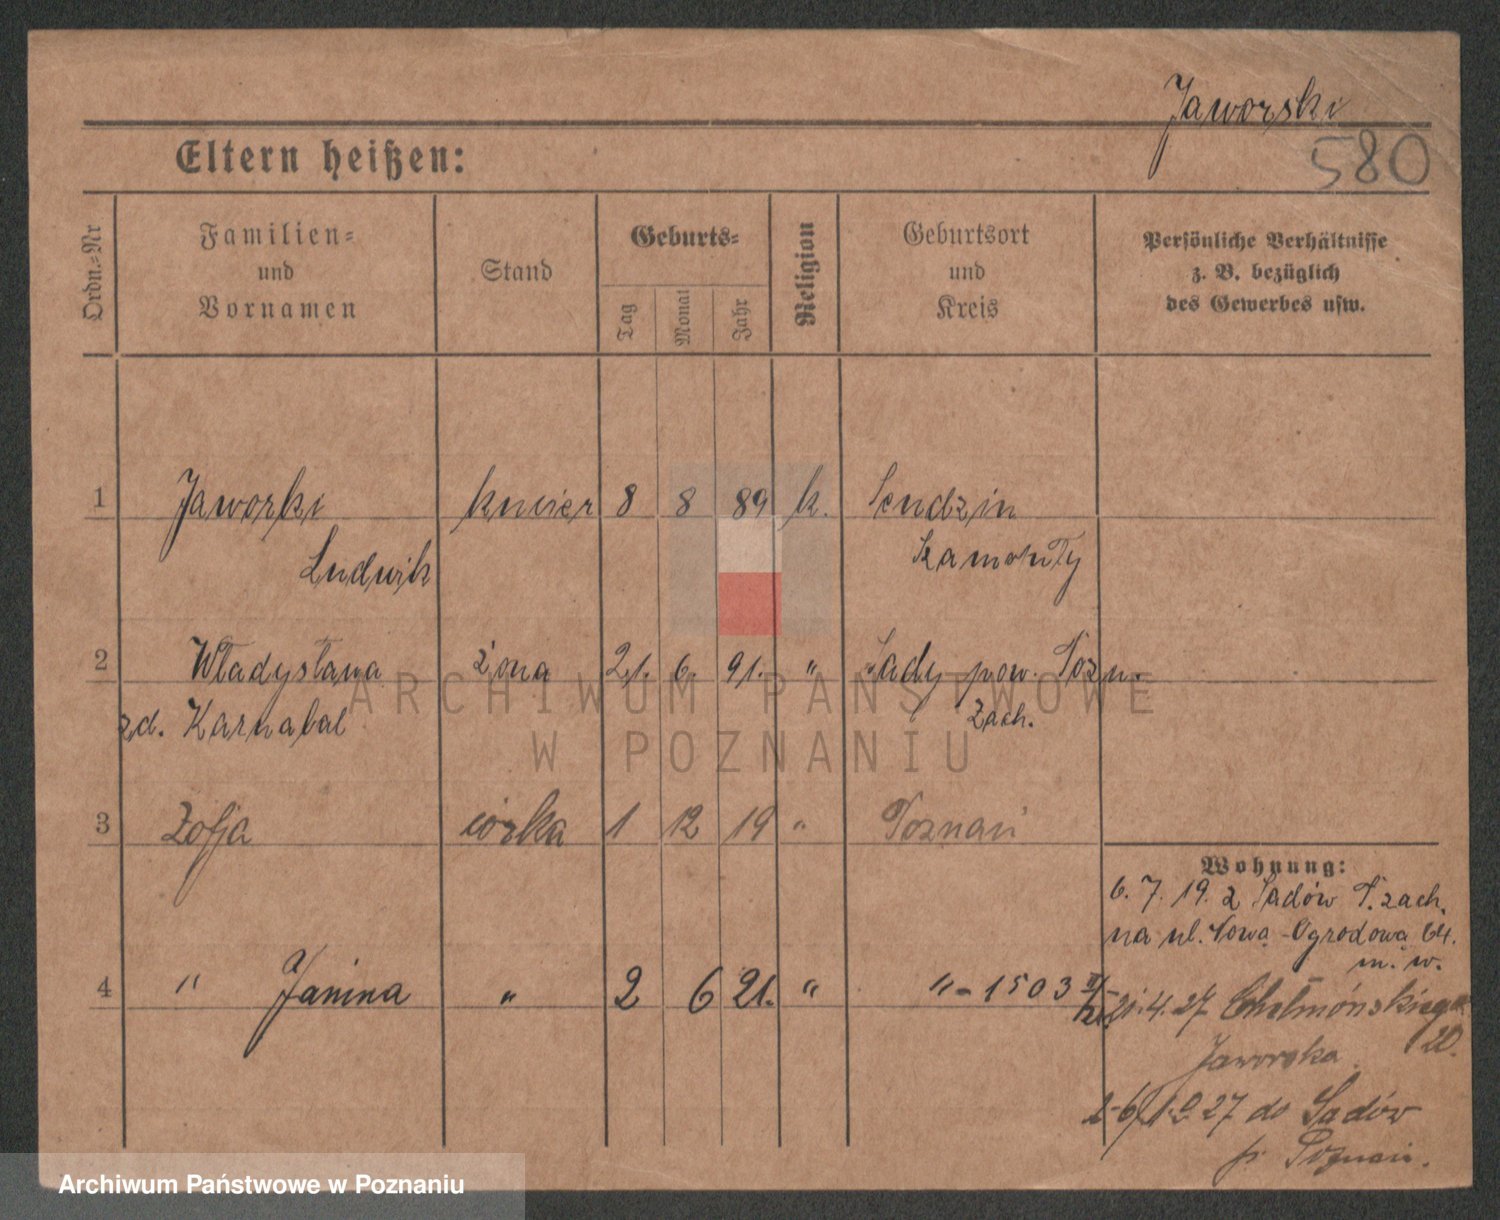 Jaworski
580
Eltern heißen:
Ordn.-Nr
Familien-
und
Vornamen
Stand
Geburts-
Tag
Monat
Jahr
Religion
Geburtsort
und
Kreis
Persönliche Verhältnisse
z. B. bezüglich
des Gewerbes usw.
1 Jaworki kusier 8 8 89 k. Sendzin
Ludwik Szamotuły
2 Władysława żona 21. 6. 91. " Sady pow. Pozn.
zd. Karnabal Zach.
3 Zofja córka 1 12 19 " Poznań
Wohnung:
6. 7. 19. z Sadów P. zach.
na ul. Nowa-Ogrodowa 64.
m. w.
4 " Janina " 2 6 21. " " - 1503
21.4.27 Chełmońskiego
20.
Jaworska
1-6/10 27 do Sadów
p. Poznań.
ARCHIWUM PAŃSTWOWE
W POZNANIU
Archiwum Państwowe w Poznaniu